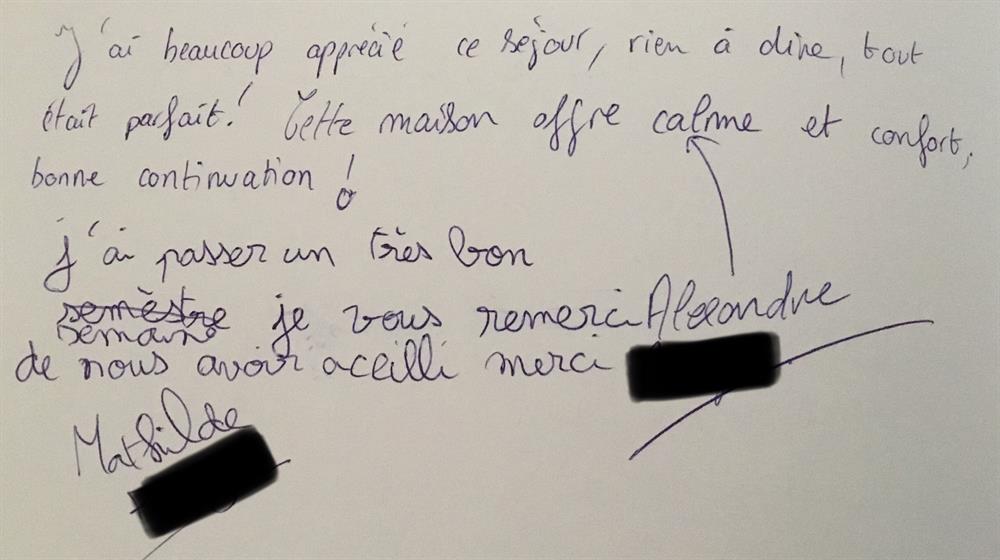 J'ai beaucoup apprécié ce séjour, rien à dire, tout
était parfait! Cette maison offre calme et confort,
bonne continuation !
j'ai passer un très bon
semèstre je vous remerci
semaine
de nous avoir aceilli merci
Alexandre
Mathilde